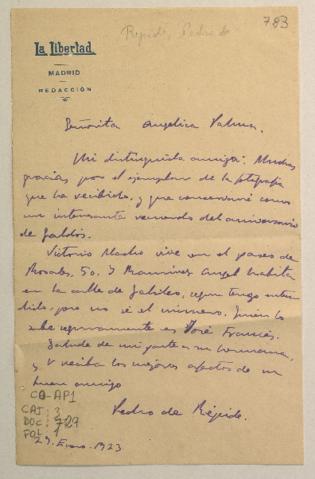 Répide, Pedro de
783
La Libertad
MADRID
REDACCIÓN
Señorita Angélica Palma.
Mi distinguida amiga: Muchas
gracias por el ejemplar de la fotografía
que he recibido, y que conservaré como
un interesante recuerdo del aniversario
de Galdós.
Victorio Macho vive en el paseo de
Rosales, 50. Y Ramírez Angel habita
en la calle de Galileo, según tengo enten
dido, pero no sé el número. Quien lo
sabe seguramente es José Francés.
Salude de mi parte a su hermana,
y V reciba los mejores afectos de un
buen amigo
Pedro de Répide.
CO-AP1
CAJ: 3
DOC: 729
FOL: 1
29. Enero. 1923